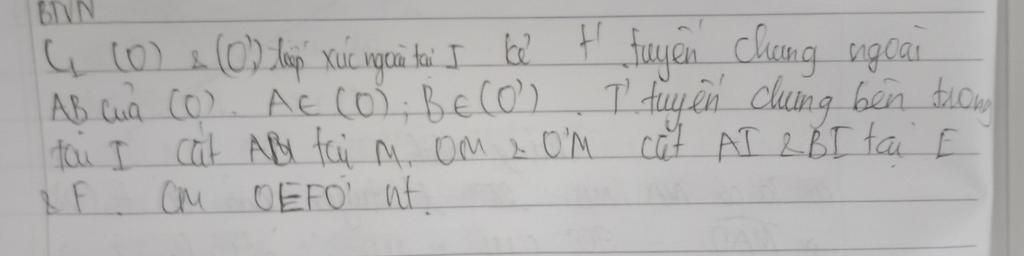 BTVN
C₁ (O) & (O') tiếp xúc ngoài tại I kẻ t² tuyến chung ngoài
AB của (O). A∈(O); B∈(O'). T² tuyến chung bên trong
tại I cắt AB tại M. OM & O'M cắt AI & BI tại E
& F. CM OEFO' nt.